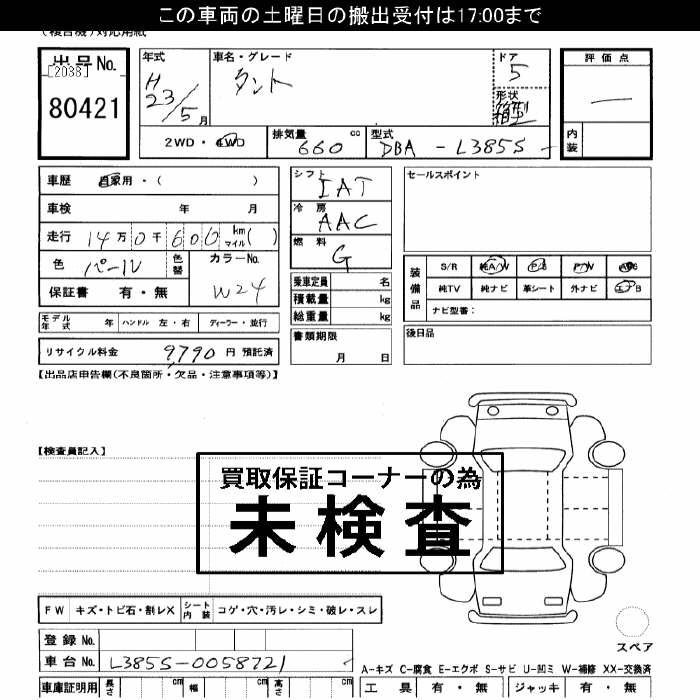 この車両の土曜日の搬出受付は17:00まで
(複合機)対応用紙
出品No.
[2038]
80421
年式
H
23/5月
車名・グレード
タント
ドア
5
形状
箱型
評価点
―
内装
2WD・4WD
排気量 cc
660
型式
DBA - L385S -
車歴 自家用・( )
車検 年 月
走行 14万0千600 km マイル( )
色 パール 色替
カラーNo.
W24
保証書 有・無
シフト
IAT
冷房
AAC
燃料
G
乗車定員 名
積載量 kg
総重量 kg
書類期限
月 日
セールスポイント
装備品
S/R 純A/W P/S P/W ABS
純TV 純ナビ 革シート 外ナビ エアB
ナビ型番:
後日品
モデル年式 年 ハンドル 左・右 ディーラー・並行
リサイクル料金 9,790 円 預託済
【出品店申告欄(不良箇所・欠品・注意事項等)】
【検査員記入】
買取保証コーナーの為
未検査
FW キズ・トビ石・割レX シート内装 コゲ・穴・汚レ・シミ・破レ・スレ
スペア
登録No.
車台No. L385S-0058721
A-キズ C-腐食 E-エクボ S-サビ U-凹ミ W-補修 XX-交換済
車庫証明用 長さ cm 幅 cm 高さ cm
工具 有・無 ジャッキ 有・無